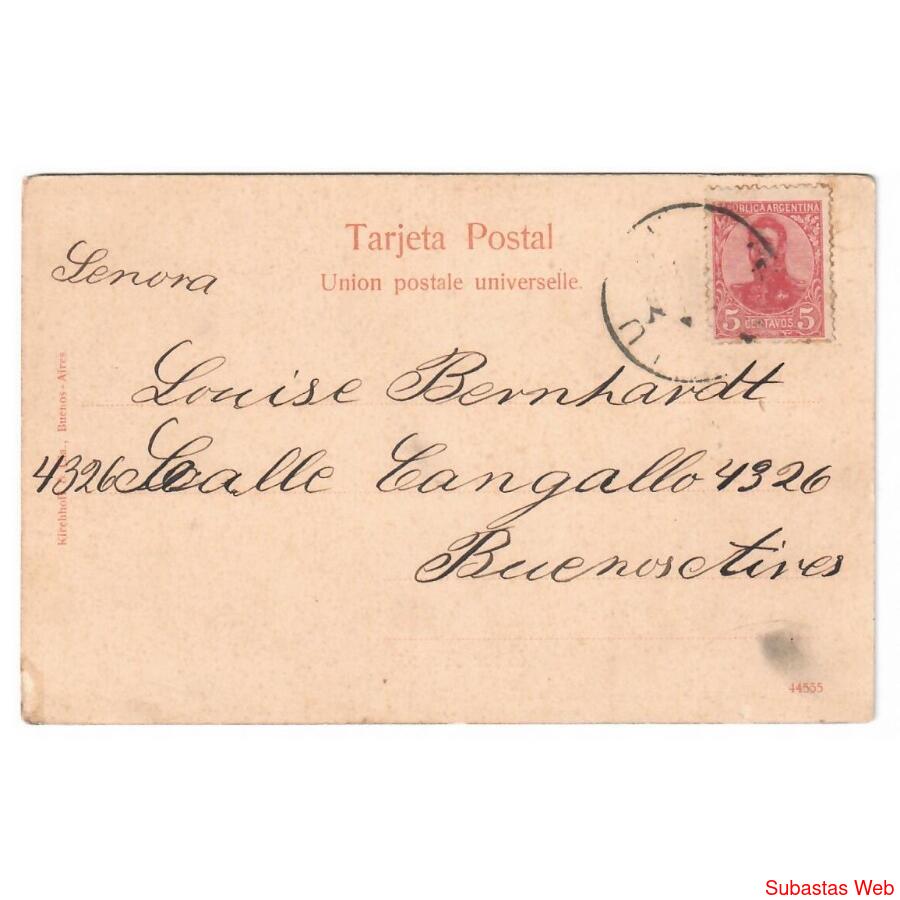 Tarjeta Postal
Union postale universelle.
REPÚBLICA ARGENTINA
5 CENTAVOS 5
Senora
Louise Bernhardt
4326 Calle Cangallo 4326
Buenos Aires
Buenos-Aires
44535
Subastas Web